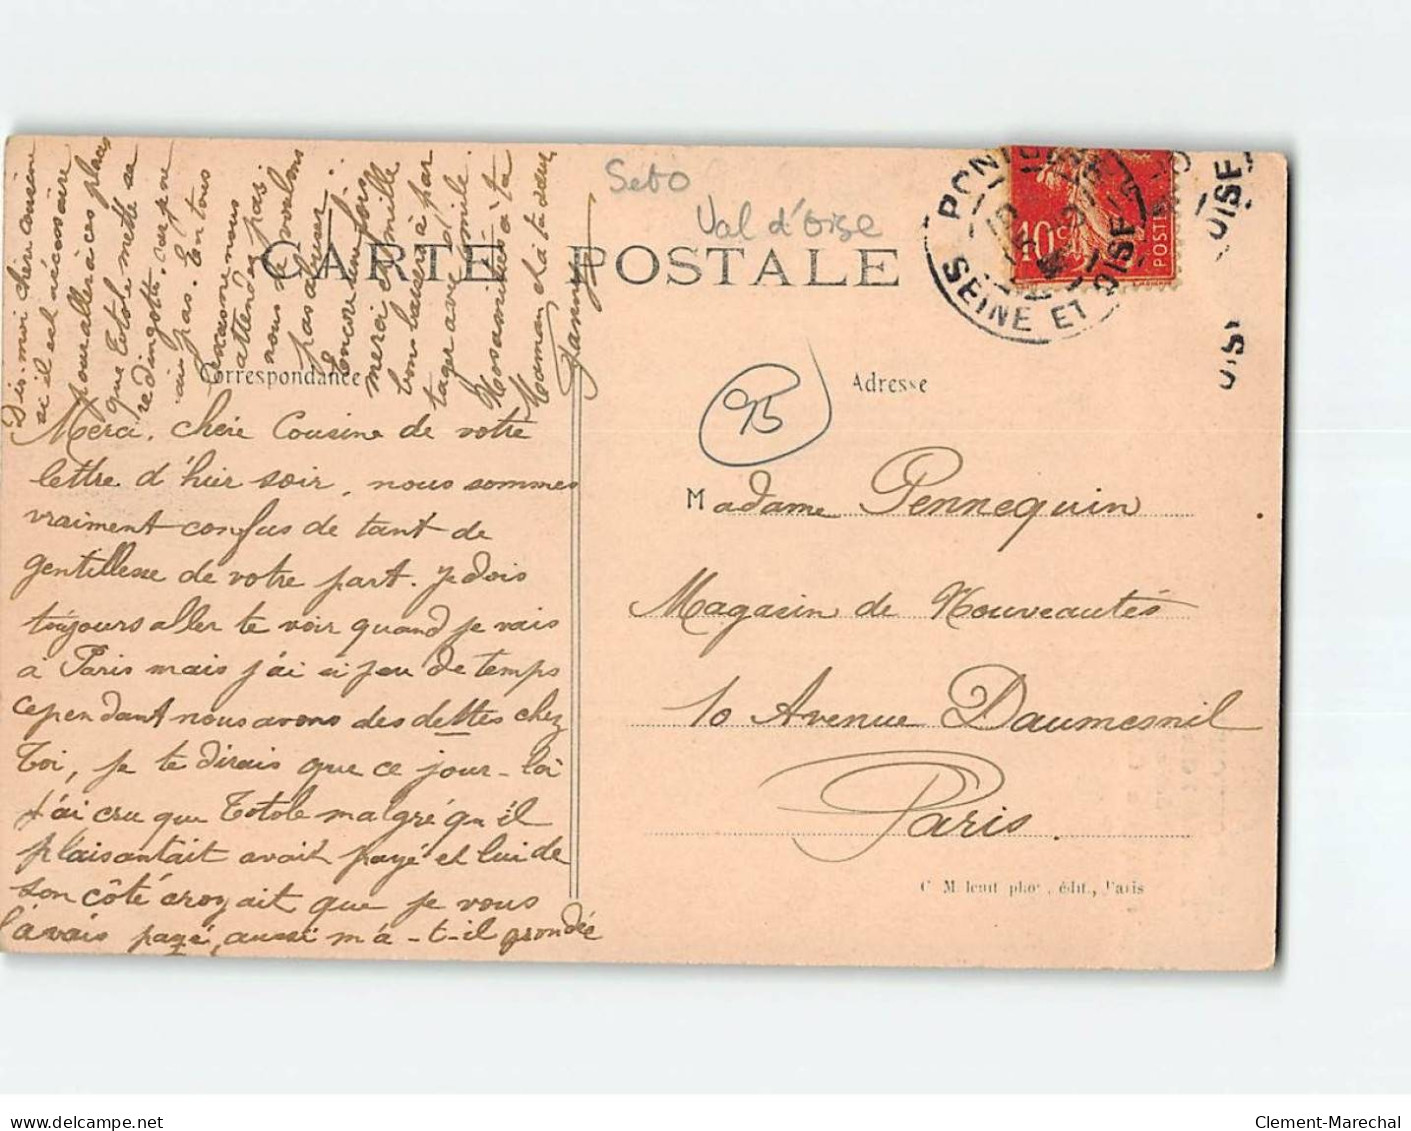 Merci, chère Cousine de votre
lettre d'hier soir, nous sommes
vraiment confus de tant de
gentillesse de votre part. je dois
toujours aller te voir quand je vais
à Paris mais j'ai si peu de temps
cependant nous avons des dettes chez
Toi, je te dirais que ce jour-là
j'ai cru que Totole malgré qu'il
plaisantait avait payé et lui de
son côté croyait que je vous
l'avais payé, aussi m'a-t-il grondée
Dis-moi chère cousine
si il est nécessaire
pour aller à ces places
que Totole mette sa
redingote, car je ne
sais pas. En tous
cas ne nous
attendez pas
nous ne voulons
pas abuser.
Encore une fois
merci et mille
bons baisers à par
tager avec Emile.
Nos amitiés à ta
Maman et à ta sœur
Fanny
CARTE POSTALE
Correspondance
Adresse
Sebo
Val d'Oise
95
PONTOISE
SEINE ET OISE
10c
POSTES
OISE
Madame Pennequin
Magasin de Nouveautés
10 Avenue Daumesnil
Paris.
phot. édit., Paris
delcampe.net
Clement-Marechal